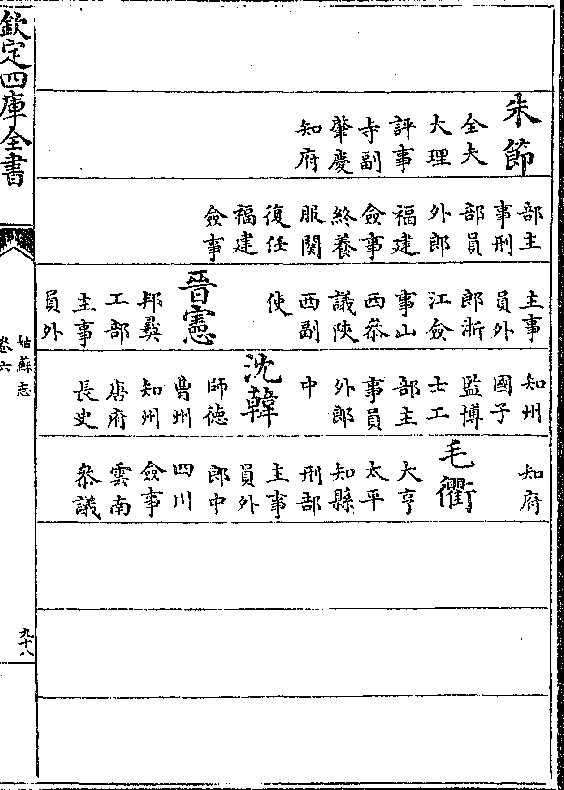 朱節
全夫
大理
評事
寺副
肇慶
知府
部主
事刑
部員
外郎
福建
僉事
終養
服闋
復任
福建
僉事
主事
員外
郎浙
江僉
事山
西叅
議陜
西副
使
晉憲
邦彛
工部
主事
員外
知州
國子
監博
士工
部主
事員
外郎
中
沈韓
師德
曹州
知州
唐府
長史
知府
毛衢
大亨
太平
知縣
刑部
主事
員外
郎中
四川
僉事
雲南
叅議
欽定四庫全書
姑蘇志
卷六
九十八